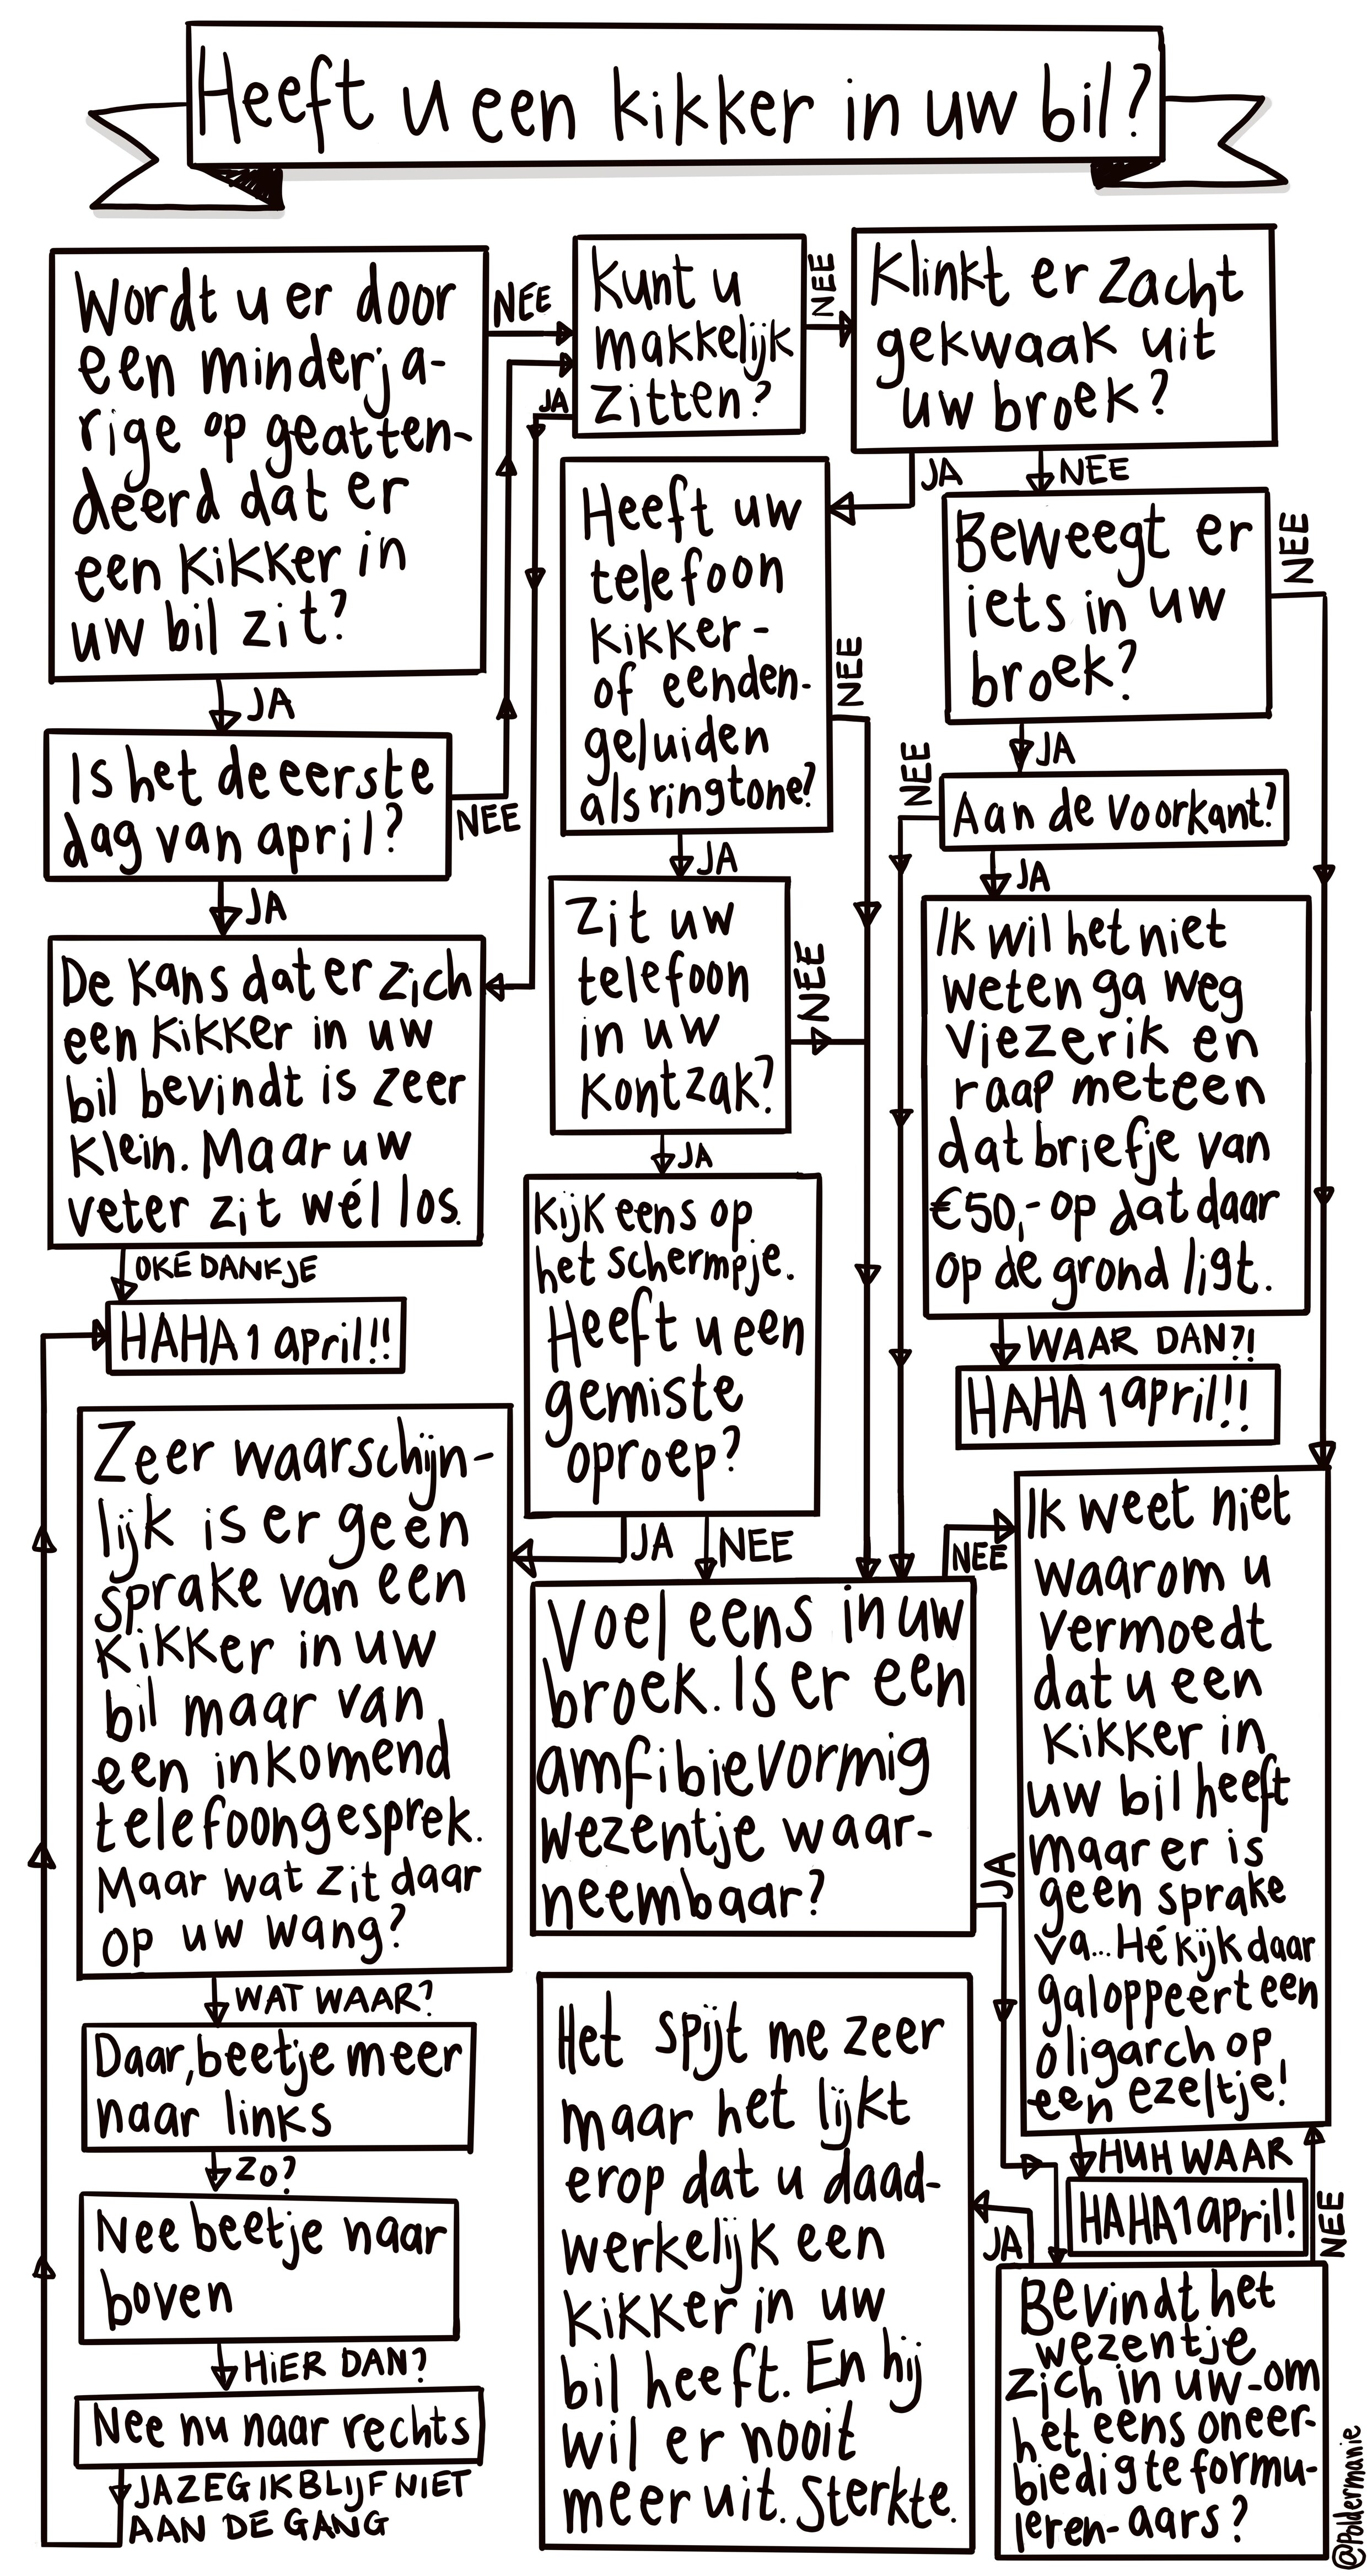 Heeft u een kikker in uw bil?
Wordt u er door
een minderja-
rige op geatten-
deerd dat er
een kikker in
uw bil zit?
NEE
JA
Is het de eerste
dag van april?
NEE
JA
De kans dat er zich
een kikker in uw
bil bevindt is zeer
klein. Maar uw
veter zit wél los.
OKÉ DANKJE
HAHA 1 april!!
Kunt u
makkelijk
zitten?
NEE
JA
Klinkt er zacht
gekwaak uit
uw broek?
JA
NEE
Heeft uw
telefoon
kikker-
of eenden-
geluiden
als ringtone?
NEE
JA
Zit uw
telefoon
in uw
kontzak?
NEE
JA
Kijk eens op
het schermpje.
Heeft u een
gemiste
oproep?
JA
NEE
Beweegt er
iets in uw
broek?
NEE
JA
Aan de voorkant?
NEE
JA
Ik wil het niet
weten ga weg
viezerik en
raap meteen
dat briefje van
€50,- op dat daar
op de grond ligt.
WAAR DAN?!
HAHA 1 april!!
Zeer waarschijn-
lijk is er geen
sprake van een
kikker in uw
bil maar van
een inkomend
telefoongesprek.
Maar wat zit daar
op uw wang?
WAT WAAR?
Daar, beetje meer
naar links
ZO?
Nee beetje naar
boven
HIER DAN?
Nee nu naar rechts
JA ZEG IK BLIJF NIET
AAN DE GANG
Voel eens in uw
broek. Is er een
amfibievormig
wezentje waar-
neembaar?
NEE
JA
Ik weet niet
waarom u
vermoedt
dat u een
kikker in
uw bil heeft
maar er is
geen sprake
va... Hé kijk daar
galoppeert een
oligarch op
een ezeltje!
HUH WAAR
HAHA 1 april!
Bevindt het
wezentje
zich in uw-om
het eens oneer-
biedig te formu-
leren-aars?
JA
NEE
Het spijt me zeer
maar het lijkt
erop dat u daad-
werkelijk een
kikker in uw
bil heeft. En hij
wil er nooit
meer uit. Sterkte.
@Poldermanie